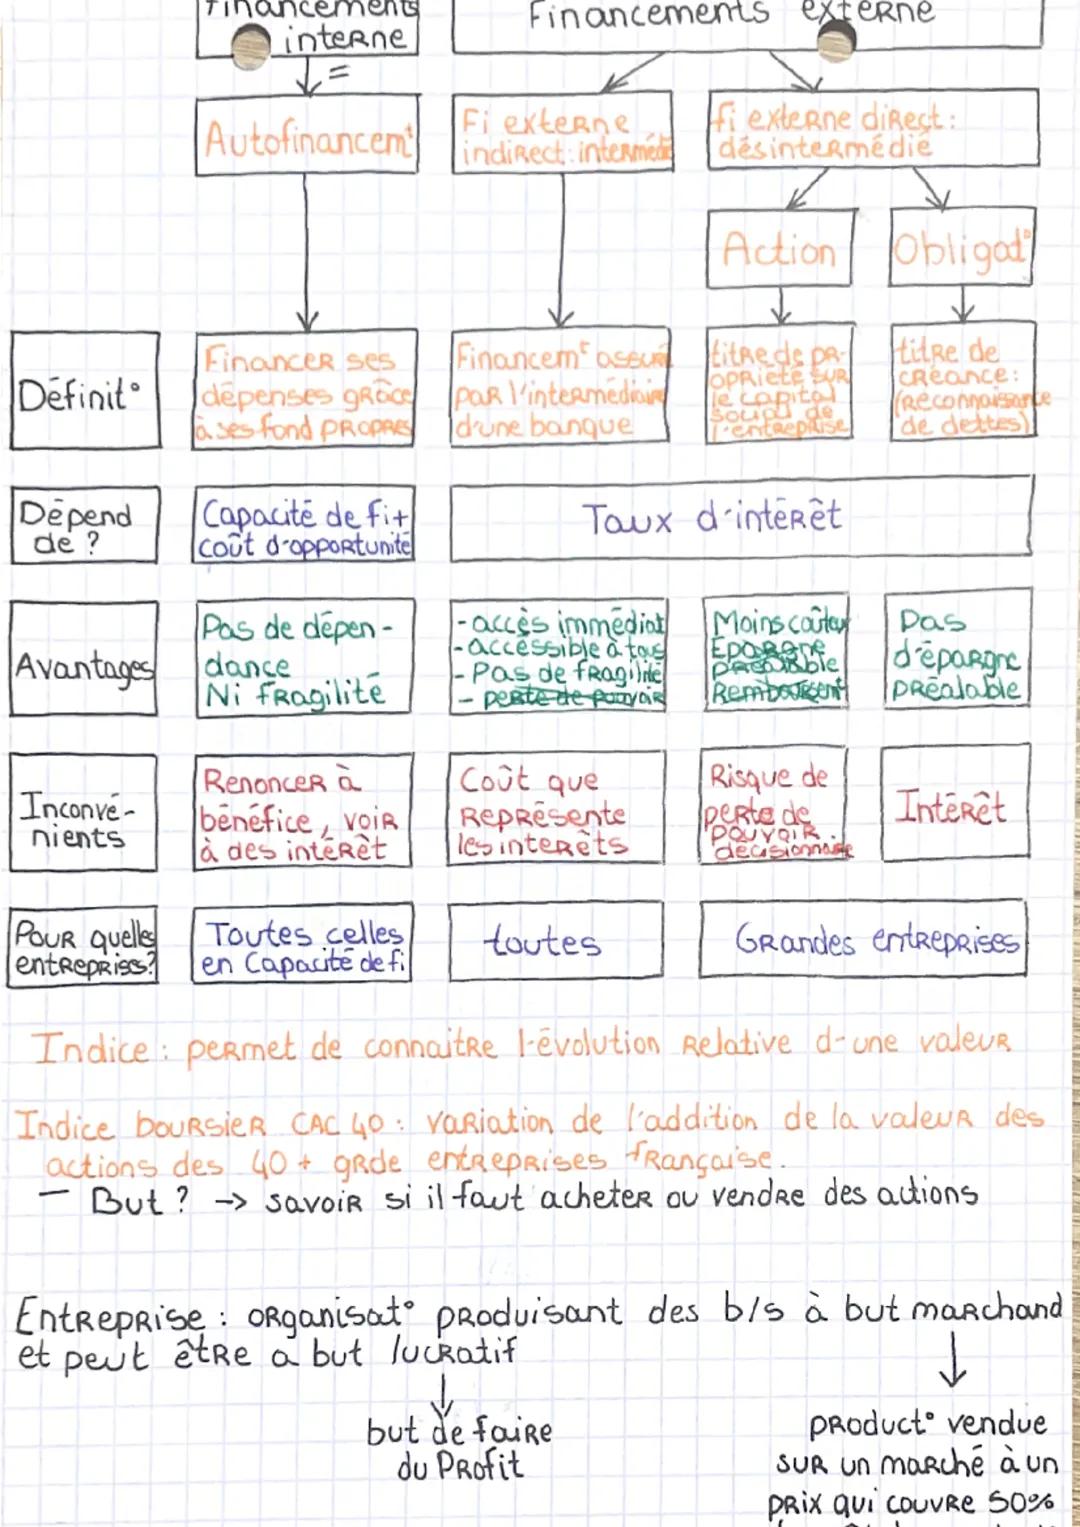 Financements
interne
Financements externe
=
Autofinancemt
Fi externe
indirect: intermédié
fi externe direct:
désintermédié
Action
Obligat°
Définit°
Financer ses
dépenses grâce
à ses fond propres
Financemt assuré
par l'intermédiaire
d'une banque
titre de pr-
opriété sur
le capital
social de
l'entreprise
titre de
créance:
(reconnaissance
de dettes)
Dépend
de ?
Capacité de fi+
coût d'opportunité
Taux d'intérêt
Avantages
Pas de dépen-
dance
Ni fragilité
- accès immédiat
- accessible à tous
- Pas de fragilité
- perte de pouvoir
Moins coûteux
Epargne
préalable
Remboursent
Pas
d'épargne
préalable
Inconvé-
nients
Renoncer à
bénéfice, voir
à des intérêt
Coût que
représente
les interêts
Risque de
perte de
pouvoir
décisionnaire
Intérêt
Pour quelles
entreprises?
Toutes celles
en Capacité de fi
toutes
Grandes entreprises
Indice : permet de connaitre l'évolution relative d'une valeur
Indice boursier CAC 40 : variation de l'addition de la valeur des
actions des 40 + grde entreprises française.
— But ? → savoir si il faut acheter ou vendre des actions
Entreprise : organisat° produisant des b/s à but marchand
et peut être a but lucratif
but de faire
du Profit
product° vendue
sur un marché à un
prix qui couvre 50%